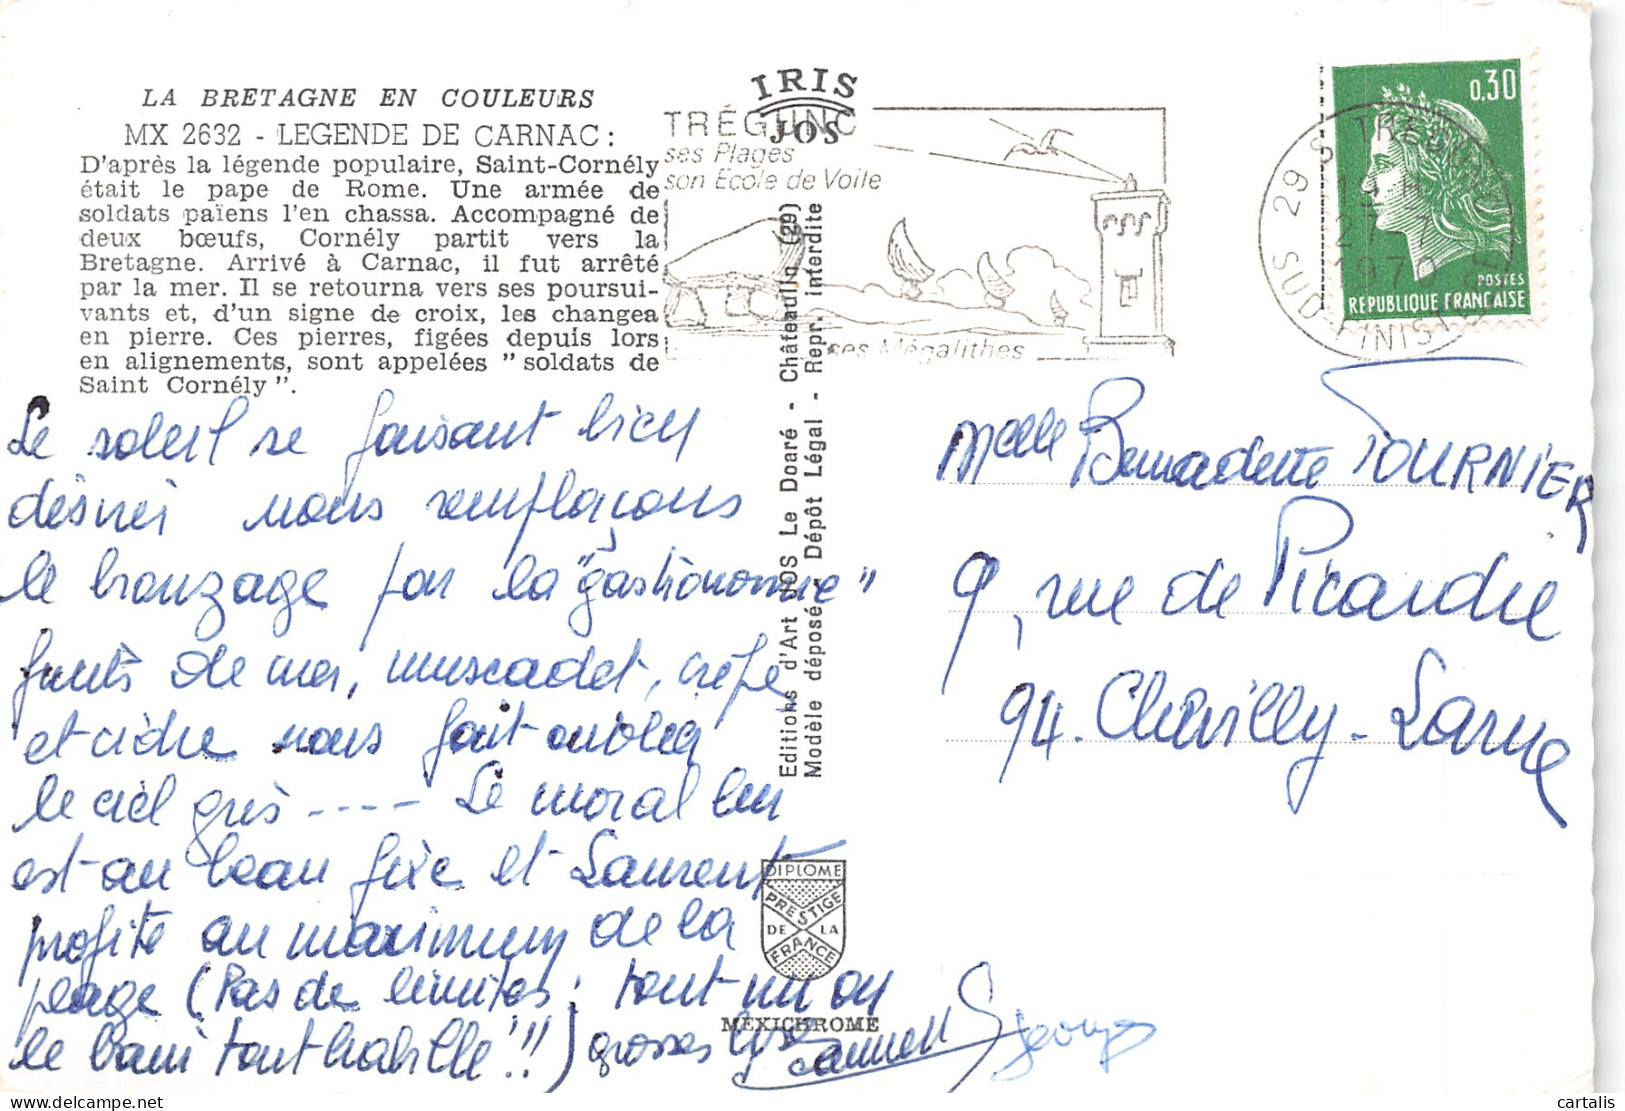 LA BRETAGNE EN COULEURS
MX 2632 - LEGENDE DE CARNAC :
D'après la légende populaire, Saint-Cornély
était le pape de Rome. Une armée de
soldats païens l'en chassa. Accompagné de
deux bœufs, Cornély partit vers la
Bretagne. Arrivé à Carnac, il fut arrêté
par la mer. Il se retourna vers ses poursui-
vants et, d'un signe de croix, les changea
en pierre. Ces pierres, figées depuis lors
en alignements, sont appelées " soldats de
Saint Cornély ".
IRIS
JOS
TRÉGUNC
ses Plages
son Ecole de Voile
ses Mégalithes
0,30
POSTES
REPUBLIQUE FRANCAISE
29 S TREGUNC
19 H
27-7
1970
SUD-FINISTERE
Le soleil se faisant bien
désirer nous remplaçons
le bronzage par la "gastronomie"
fruits de mer, muscadet, crêpe
et cidre nous font oublier
le ciel gris ---- Le moral lui
est au beau fixe et Laurent
profite au maximum de la
plage (Pas de limites; tout nu ou
le bain tout habillé!!) grosses bises
Georges
Melle Bernadette FOURNIER
9, rue de Picardie
94. Chevilly-Larue
Editions d'Art JOS Le Doaré - Châteaulin (29)
Modèle déposé - Dépôt Légal - Repr. interdite
DIPLOME
PRESTIGE
DE LA
FRANCE
MEXICHROME
cartalis